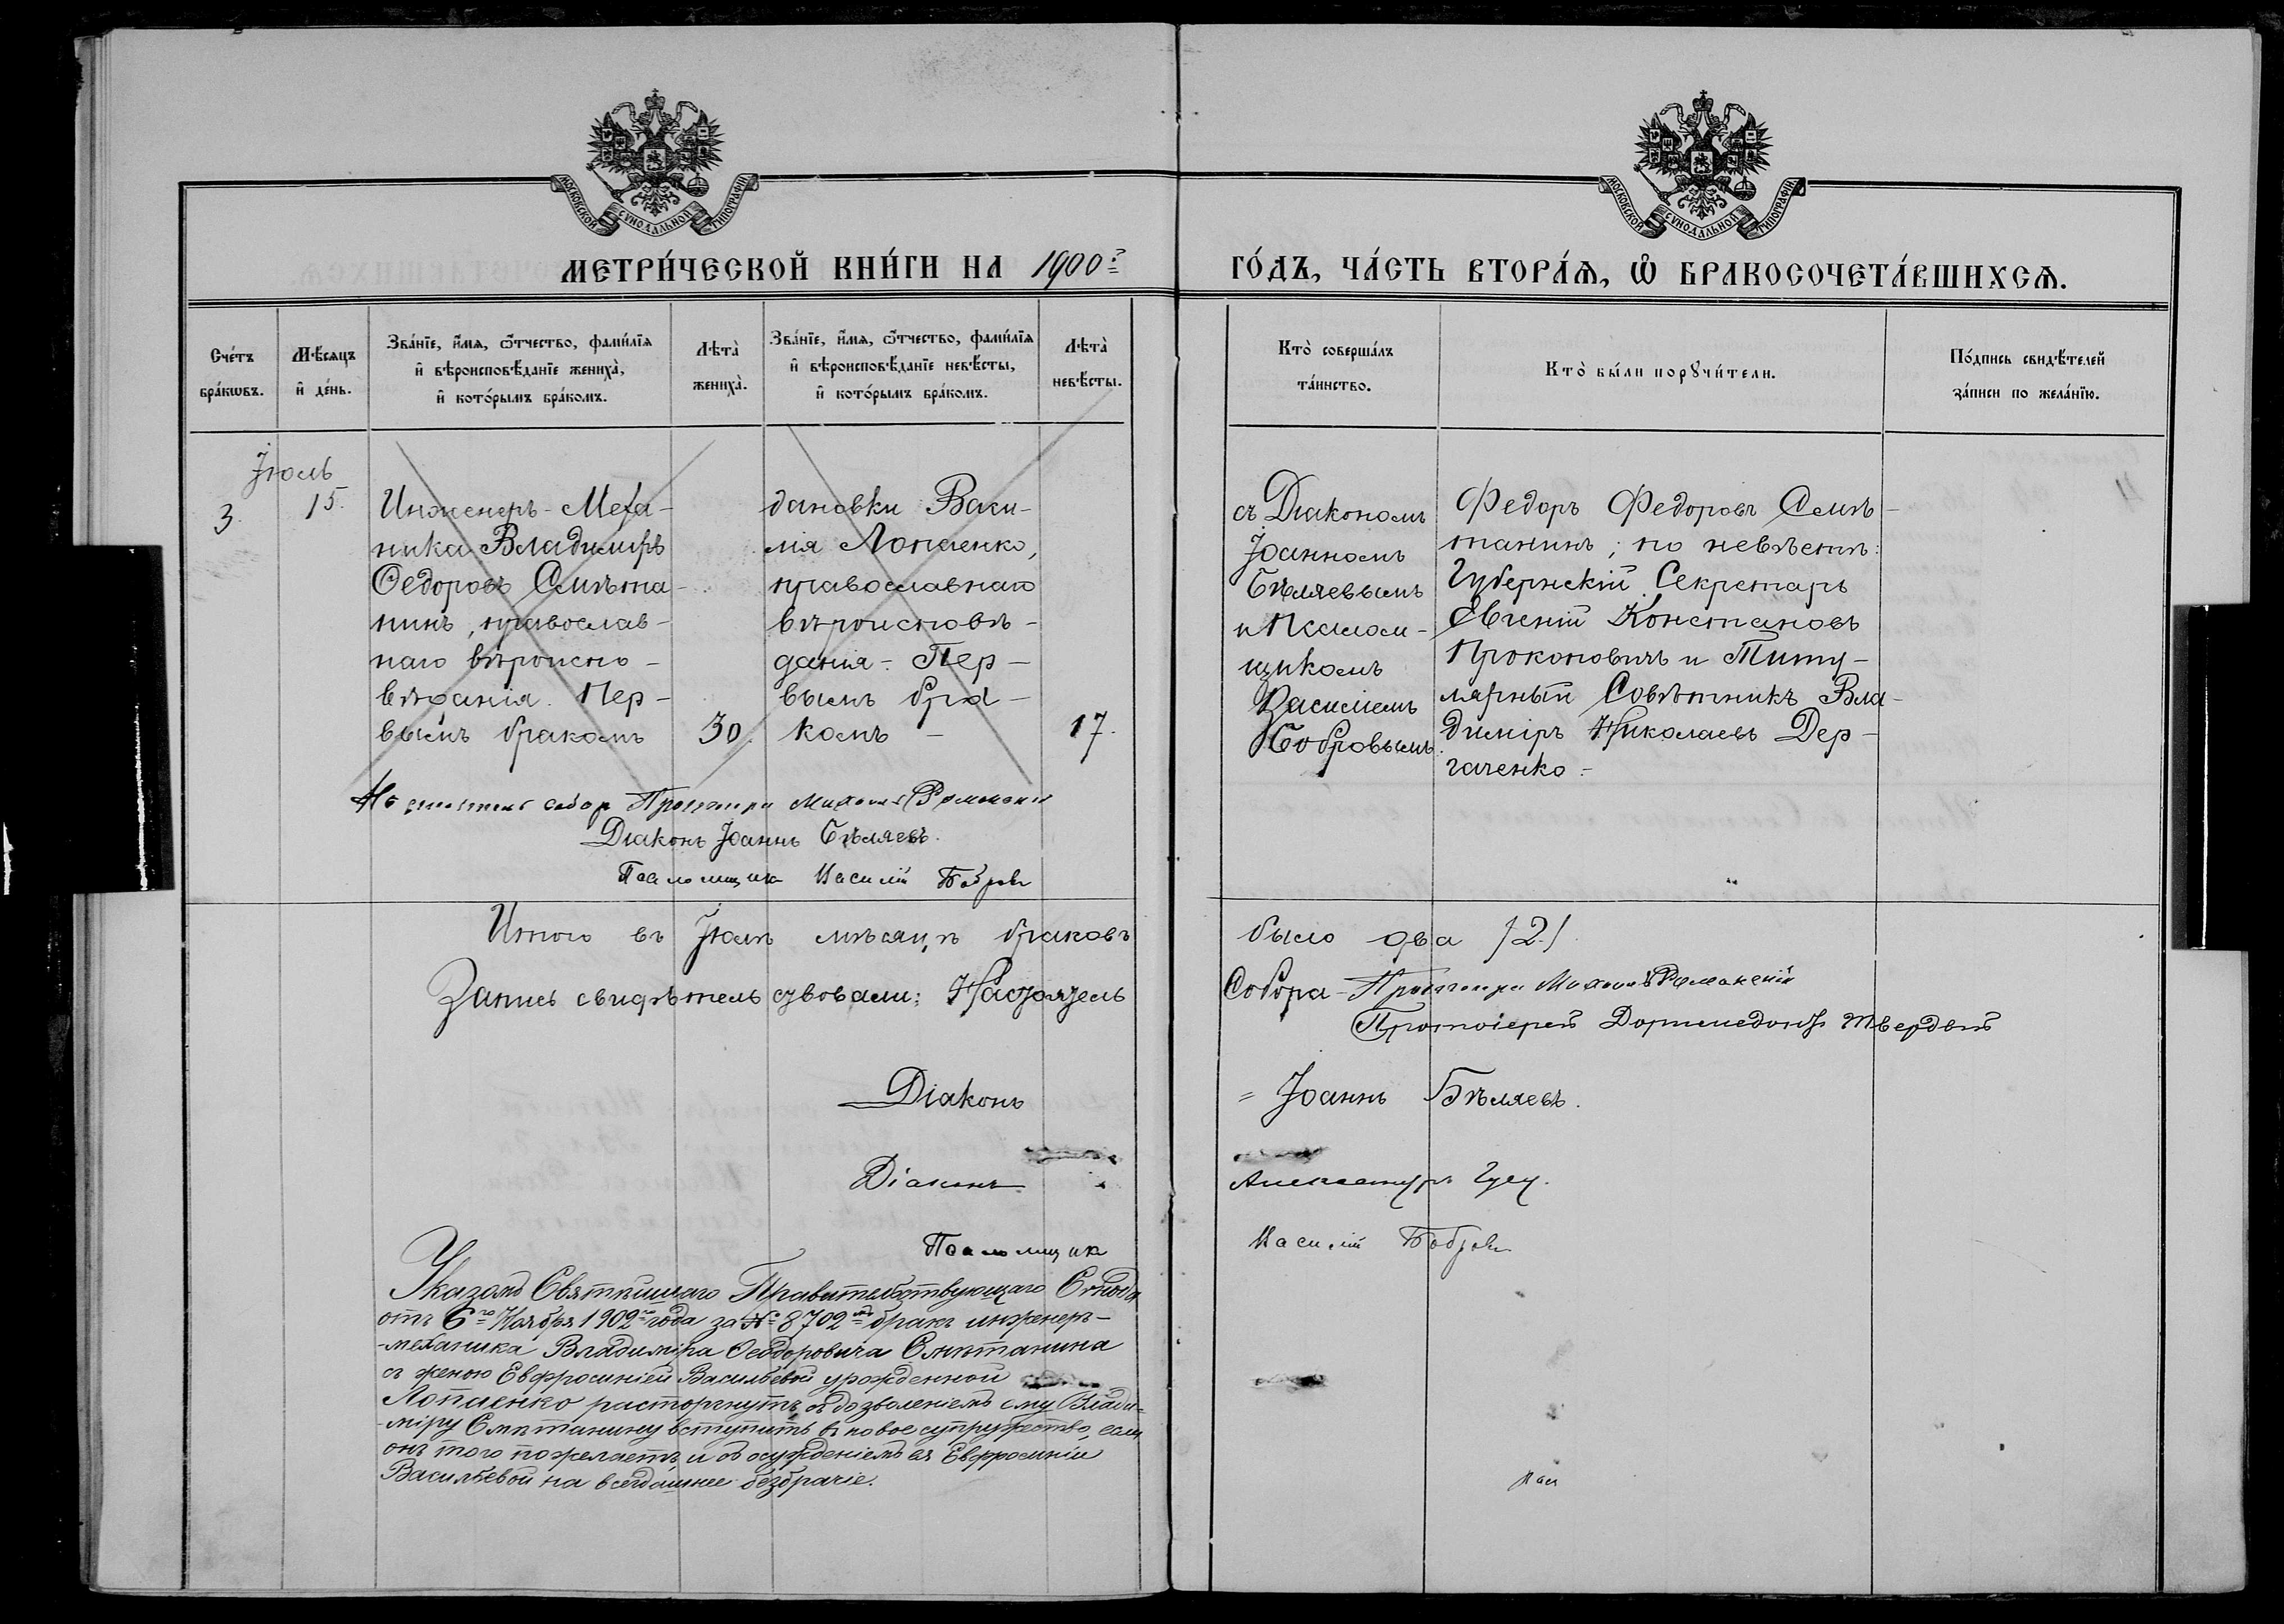 МОСКОВСКОЙ СѴНОДАЛЬНОЙ ТИПОГРАФІИ
МОСКОВСКОЙ СѴНОДАЛЬНОЙ ТИПОГРАФІИ
МЕТРИ́ЧЕСКОЙ КНИ́ГИ НА 1900й
ГО́ДЪ, ЧА́СТЬ ВТОРА́Ѧ, Ѡ҆ БРАКОСОЧЕТА́ВШИХСѦ.
Сче́тъ
бра́кѡвъ.
Мѣ́сяцъ
и҆ де́нь.
Зва́нїе, и҆́мѧ, ѻ҆́тчество, фами́лїѧ
и҆ вѣроисповѣ́данїе жениха̀,
и҆ кото́рымъ бра́комъ.
Лѣта̀
жениха̀.
Зва́нїе, и҆́мѧ, ѻ҆́тчество, фами́лїѧ
и҆ вѣроисповѣ́данїе невѣ́сты,
и҆ кото́рымъ бра́комъ.
Лѣта̀
невѣ́сты.
Кто̀ соверша́лъ
та́инство.
Кто̀ бы́ли порꙋчи́тели.
По́дпись свидѣ́телей
за́писи по жела́нїю.
Іюль
3.
15.
Инженеръ-Меха-
ника Владиміръ
Ѳедоровъ Смѣта-
нинъ, православ-
наго вѣроиспо-
вѣданія. Пер-
вымъ бракомъ
30.
дановки Васи-
лія Лопаенко,
православнаго
вѣроисповѣ-
данія. Пер-
вымъ бра-
комъ -
17.
съ Діакономъ
Іоанномъ
Бѣляевымъ
и Псалом-
щикомъ
Василіемъ
Бобровымъ.
Федоръ Федоровъ Смѣ-
танинъ; по невѣстѣ:
Губернскій Секретарь
Евгеній Констановъ
Прокоповичъ и Титу-
лярный Совѣтникъ Вла-
диміръ Николаевъ Дер-
гаченко.
Протоіерей Михаилъ Романскій
Діаконъ Іоаннъ Бѣляевъ.
Псаломщикъ Василій Бобровъ
Итого въ Іюлѣ мѣсяцѣ браковъ
было два /2/
Запись свидѣтельствовали: Настоятель
Собора - Протоіерей Михаилъ Романскій
Протоіерей Доримедонтъ Твердый
Діаконъ
= Іоаннъ Бѣляевъ.
Діаконъ
Александръ
Псаломщикъ
Василій Бобровъ
Указомъ Святѣйшаго Правительствующаго Сѵнода
отъ 6го Ноября 1902го года за № 8702мъ бракъ инженеръ-
-механика Владиміра Ѳеодоровича Смѣтанина
съ женою Евфросиніей Васильевой урожденной
Лопаенко расторгнутъ съ дозволеніемъ ему Влади-
-міру Смѣтанину вступить въ новое супружество, если
онъ того пожелаетъ, и съ осужденіемъ ея Евфросиніи
Васильевой на всегдашнее безбрачіе.